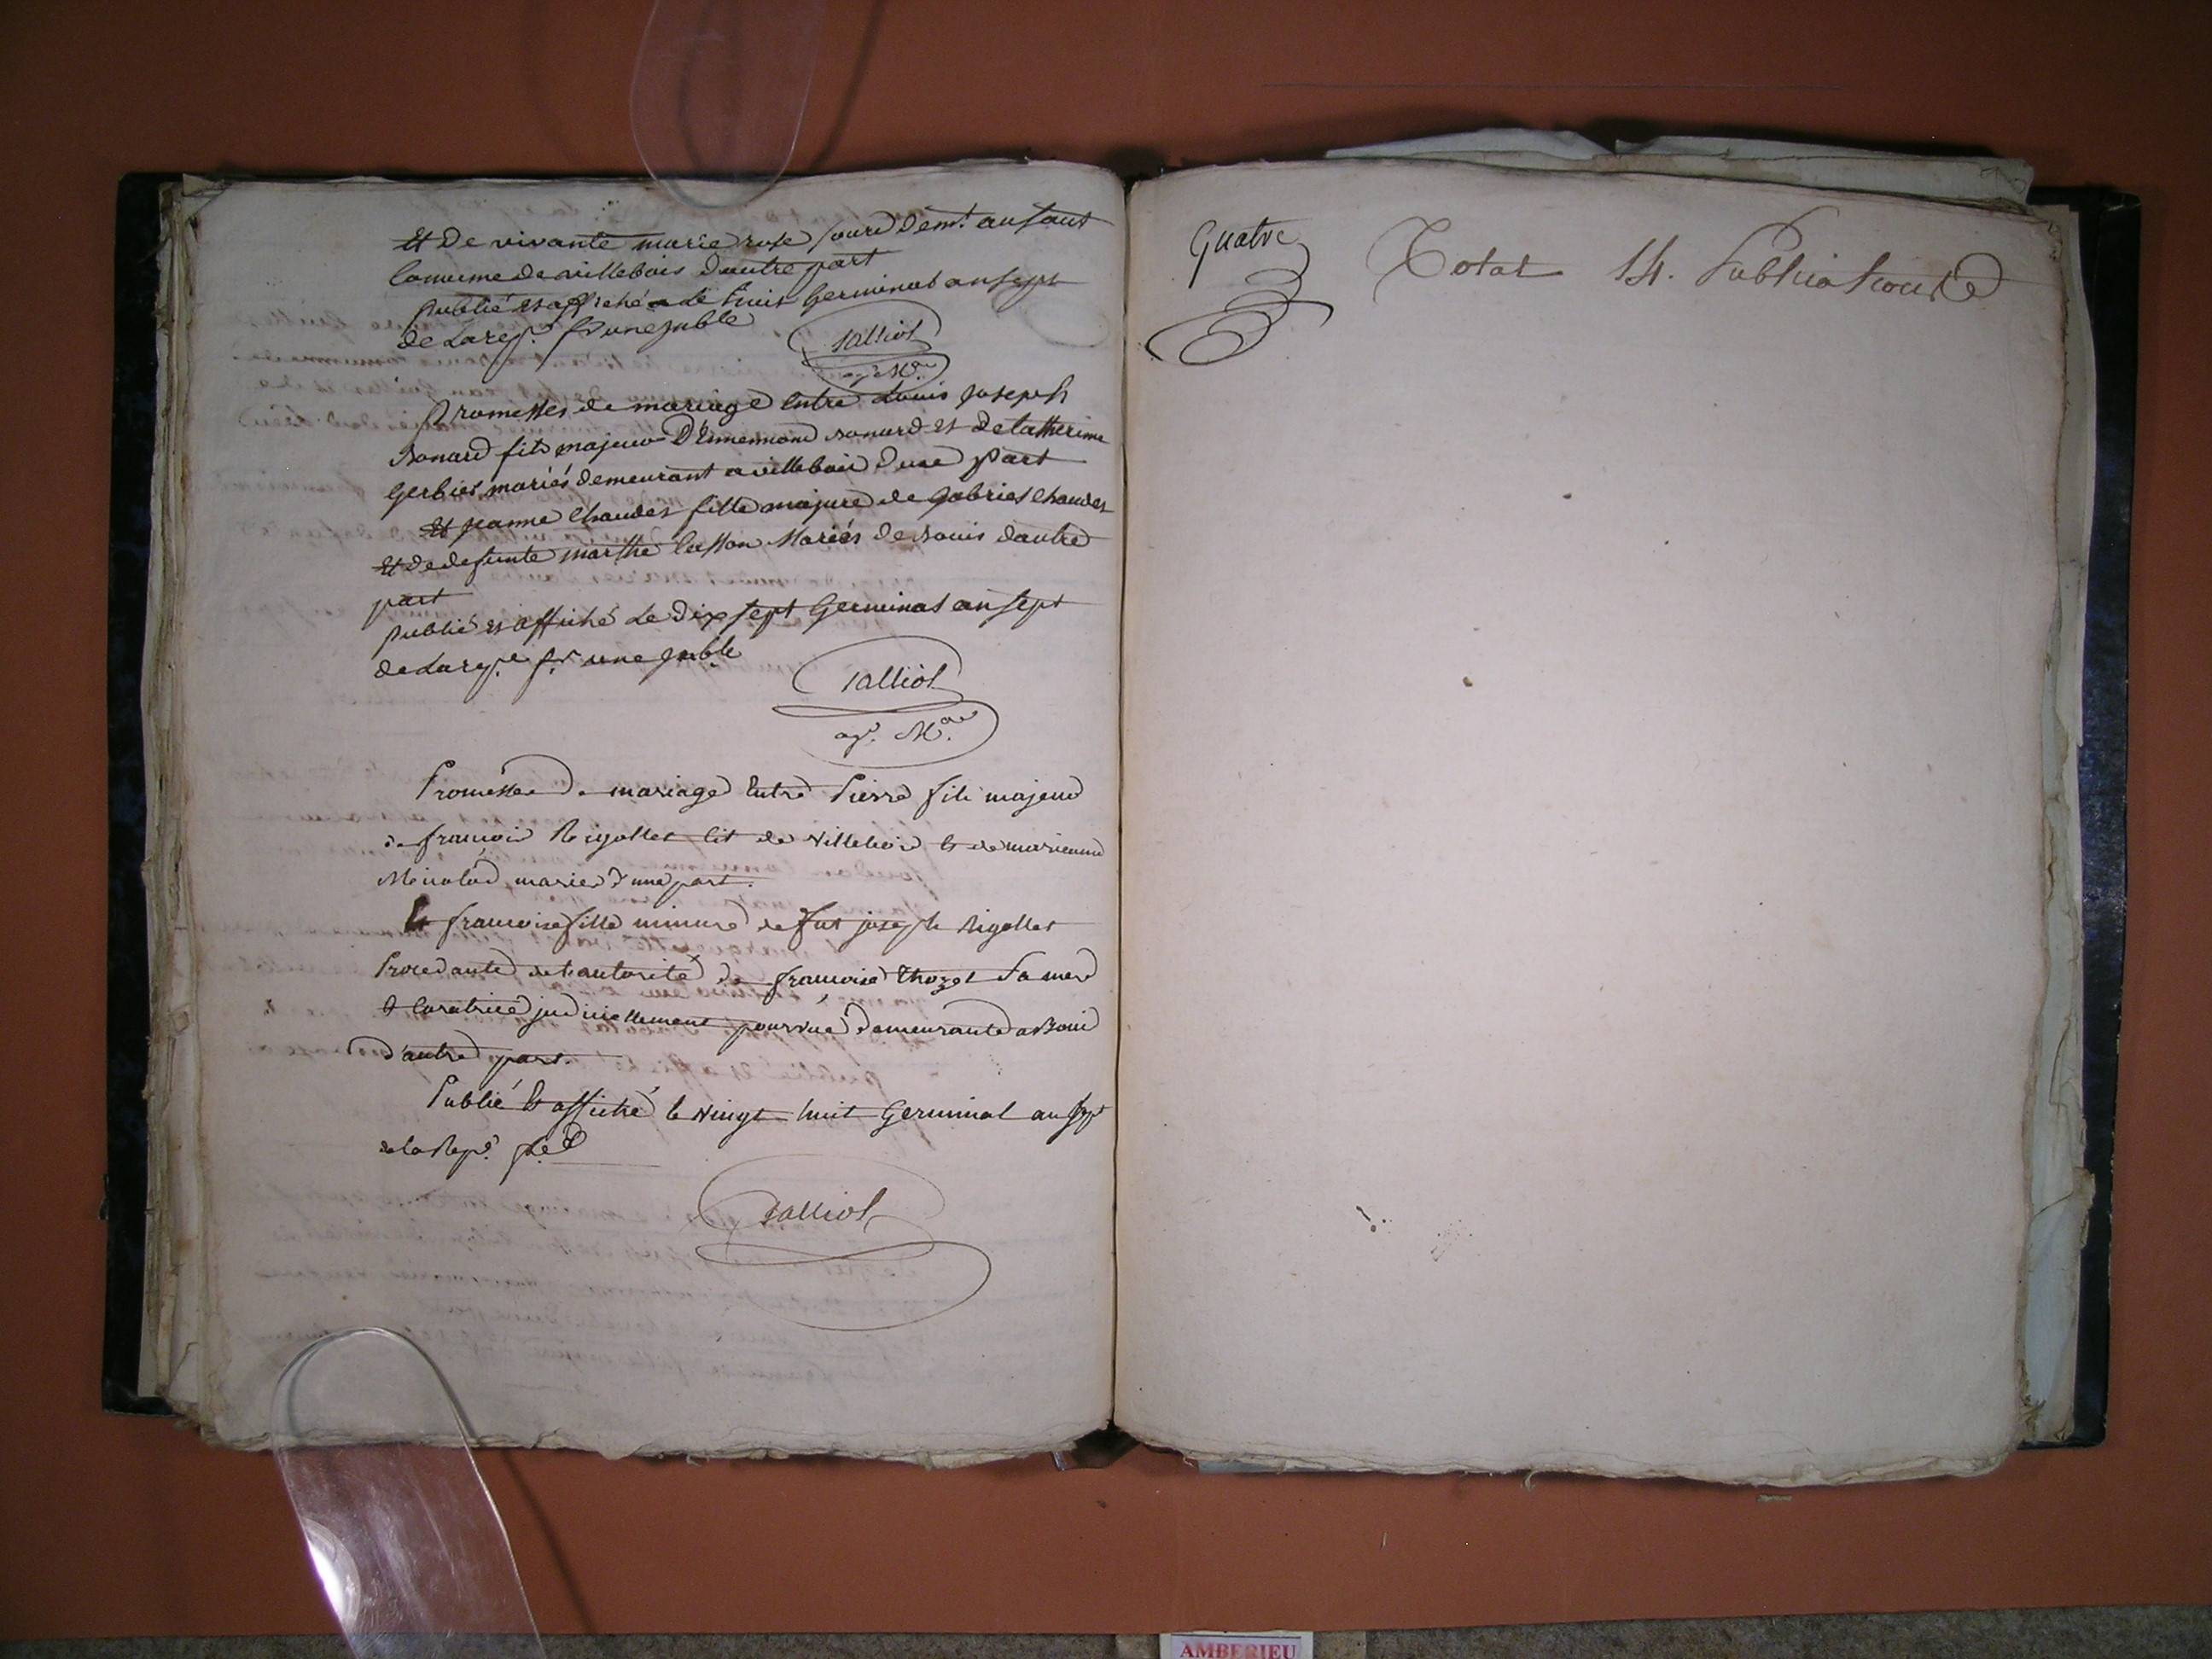 Et de vivante marie rose demt au
Comune de villebois dautre part
publié et affiché Le huit Germinal an sept
de La repe fr une &
talliot
agt Mal
Promesses de mariage Entre Louis Joseph
Bonard fils majeur D'Ennemond Bonard et de Catherine
Gerbier mariés demeurant a villebois dune part
Et jeanne Chaudet fille majeure de Gabriel Chaudet
Et de defunte marthe Mariés de Bouis dautre
part
publié et affiché Le Dix sept Germinal an sept
de La repe fr une &
talliot
agt Mal
Promesse de mariage Entre Pierre fils majeur
de françois Rigollet dit de Villebois et de marianne
mariés d'une part.
Et françoise fille mineure de fut joseph Rigollet
Procedante de l'autorité de françoise Thozet Sa mere
& Curatrice judiciellement pourvue demeurante a Bouis
d'autre part.
Publié Et affiché le Vingt huit Germinal an sept
de la Repe
talliot
Quatre
Total 14. Publications
AMBERIEU